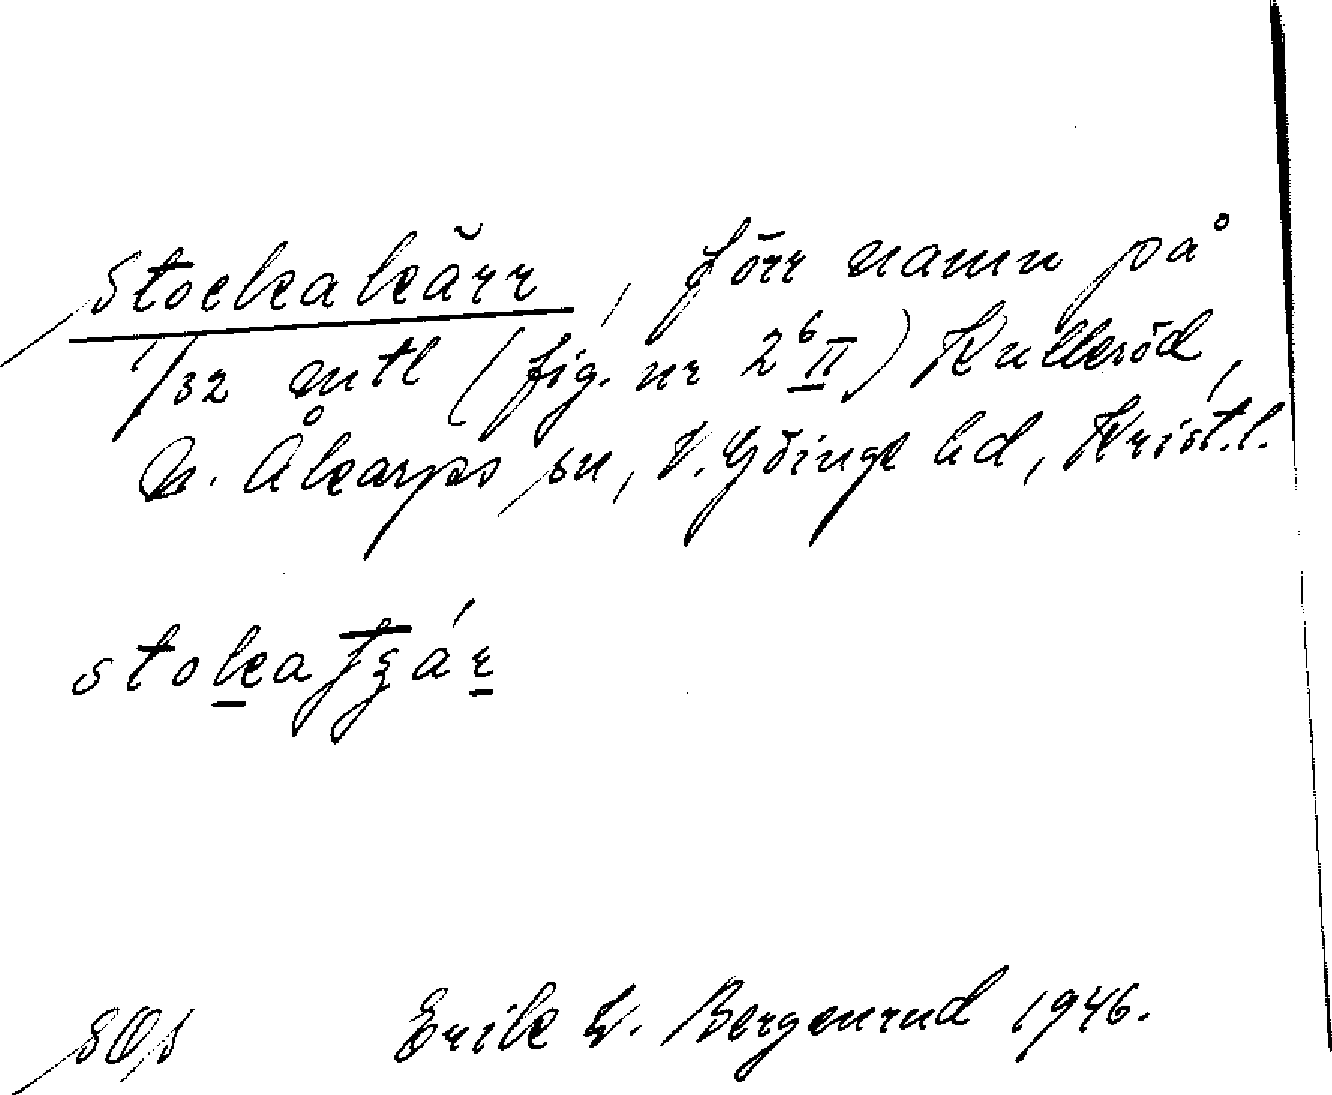 Stockakärr, förr namn på
1/32 mtl (fig. nr 2⁶ II) Kulleröd,
N. Åkarps sn, V. Göinge hd, Krist. l.
Erik W. Bergenrud 1946.